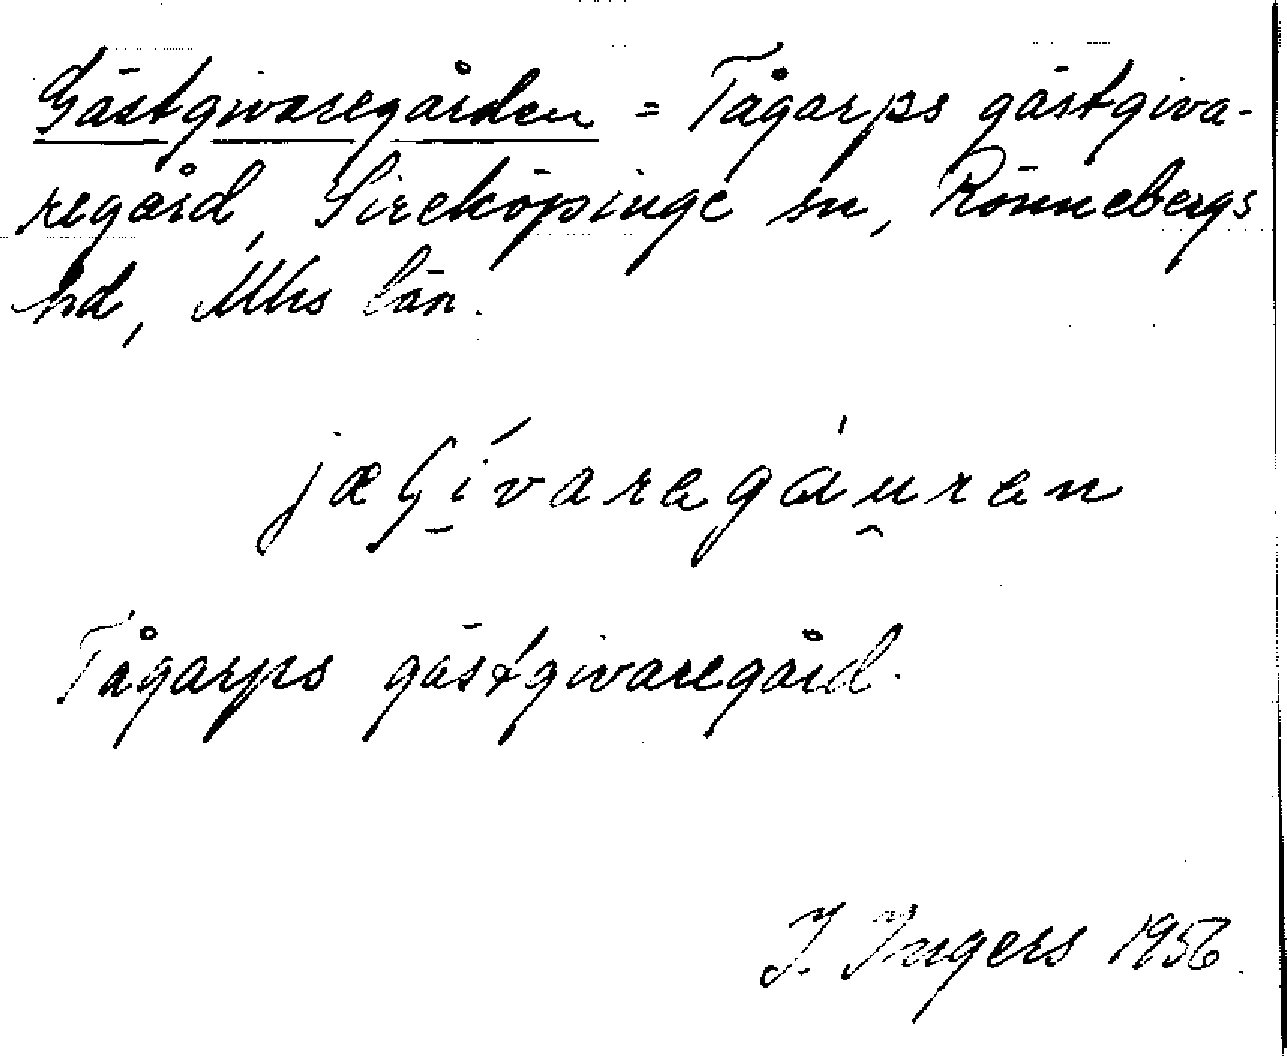 Gästgivaregården = Tågarps gästgiva-
regård, Sireköpinge sn, Rönnebergs
hd, Mhs län.
Tågarps gästgivaregård.
I. Ingers 1956.